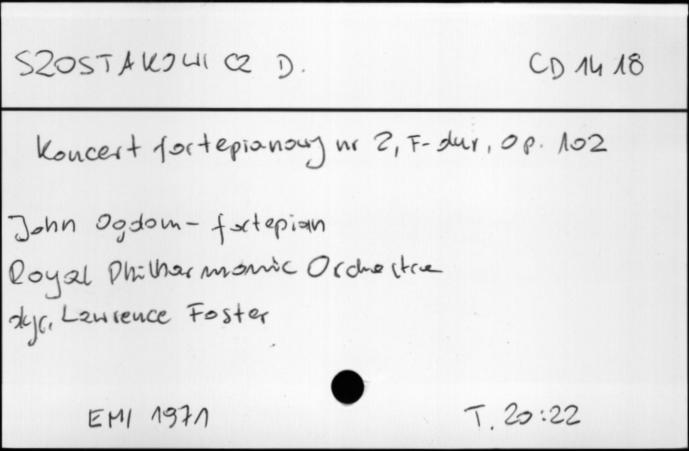 SZOSTAKOWICZ D. CD 1418
Koncert fortepianowy nr 2, F-dur, Op. 102
John Ogdom - fortepian
Royal Philharmonic Orchestra
dyr. Lawrence Foster
EMI 1971 T. 20:22